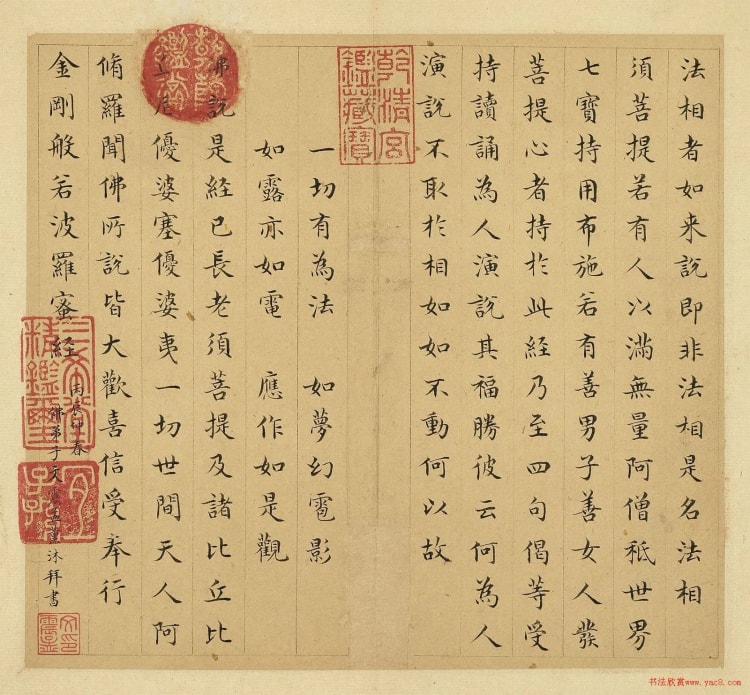 法相者如来說即非法相是名法相
須菩提若有人以滿無量阿僧祇世界
七寶持用布施若有善男子善女人發
菩提心者持於此經乃至四句偈等受
持讀誦為人演說其福勝彼云何為人
演說不取於相如如不動何以故
乾清宮
鑑藏寶
一切有為法　如夢幻雹影
如露亦如電　應作如是觀
佛說是經已長老須菩提及諸比丘比
丘尼優婆塞優婆夷一切世間天人阿
脩羅聞佛所說皆大歡喜信受奉行
金剛般若波羅蜜經
丙辰仲春
佛弟子文震孟薰沐拜書
乾隆
鑑賞
三希堂
精鑑璽
宜
子孫
书法欣赏www.yac8.com